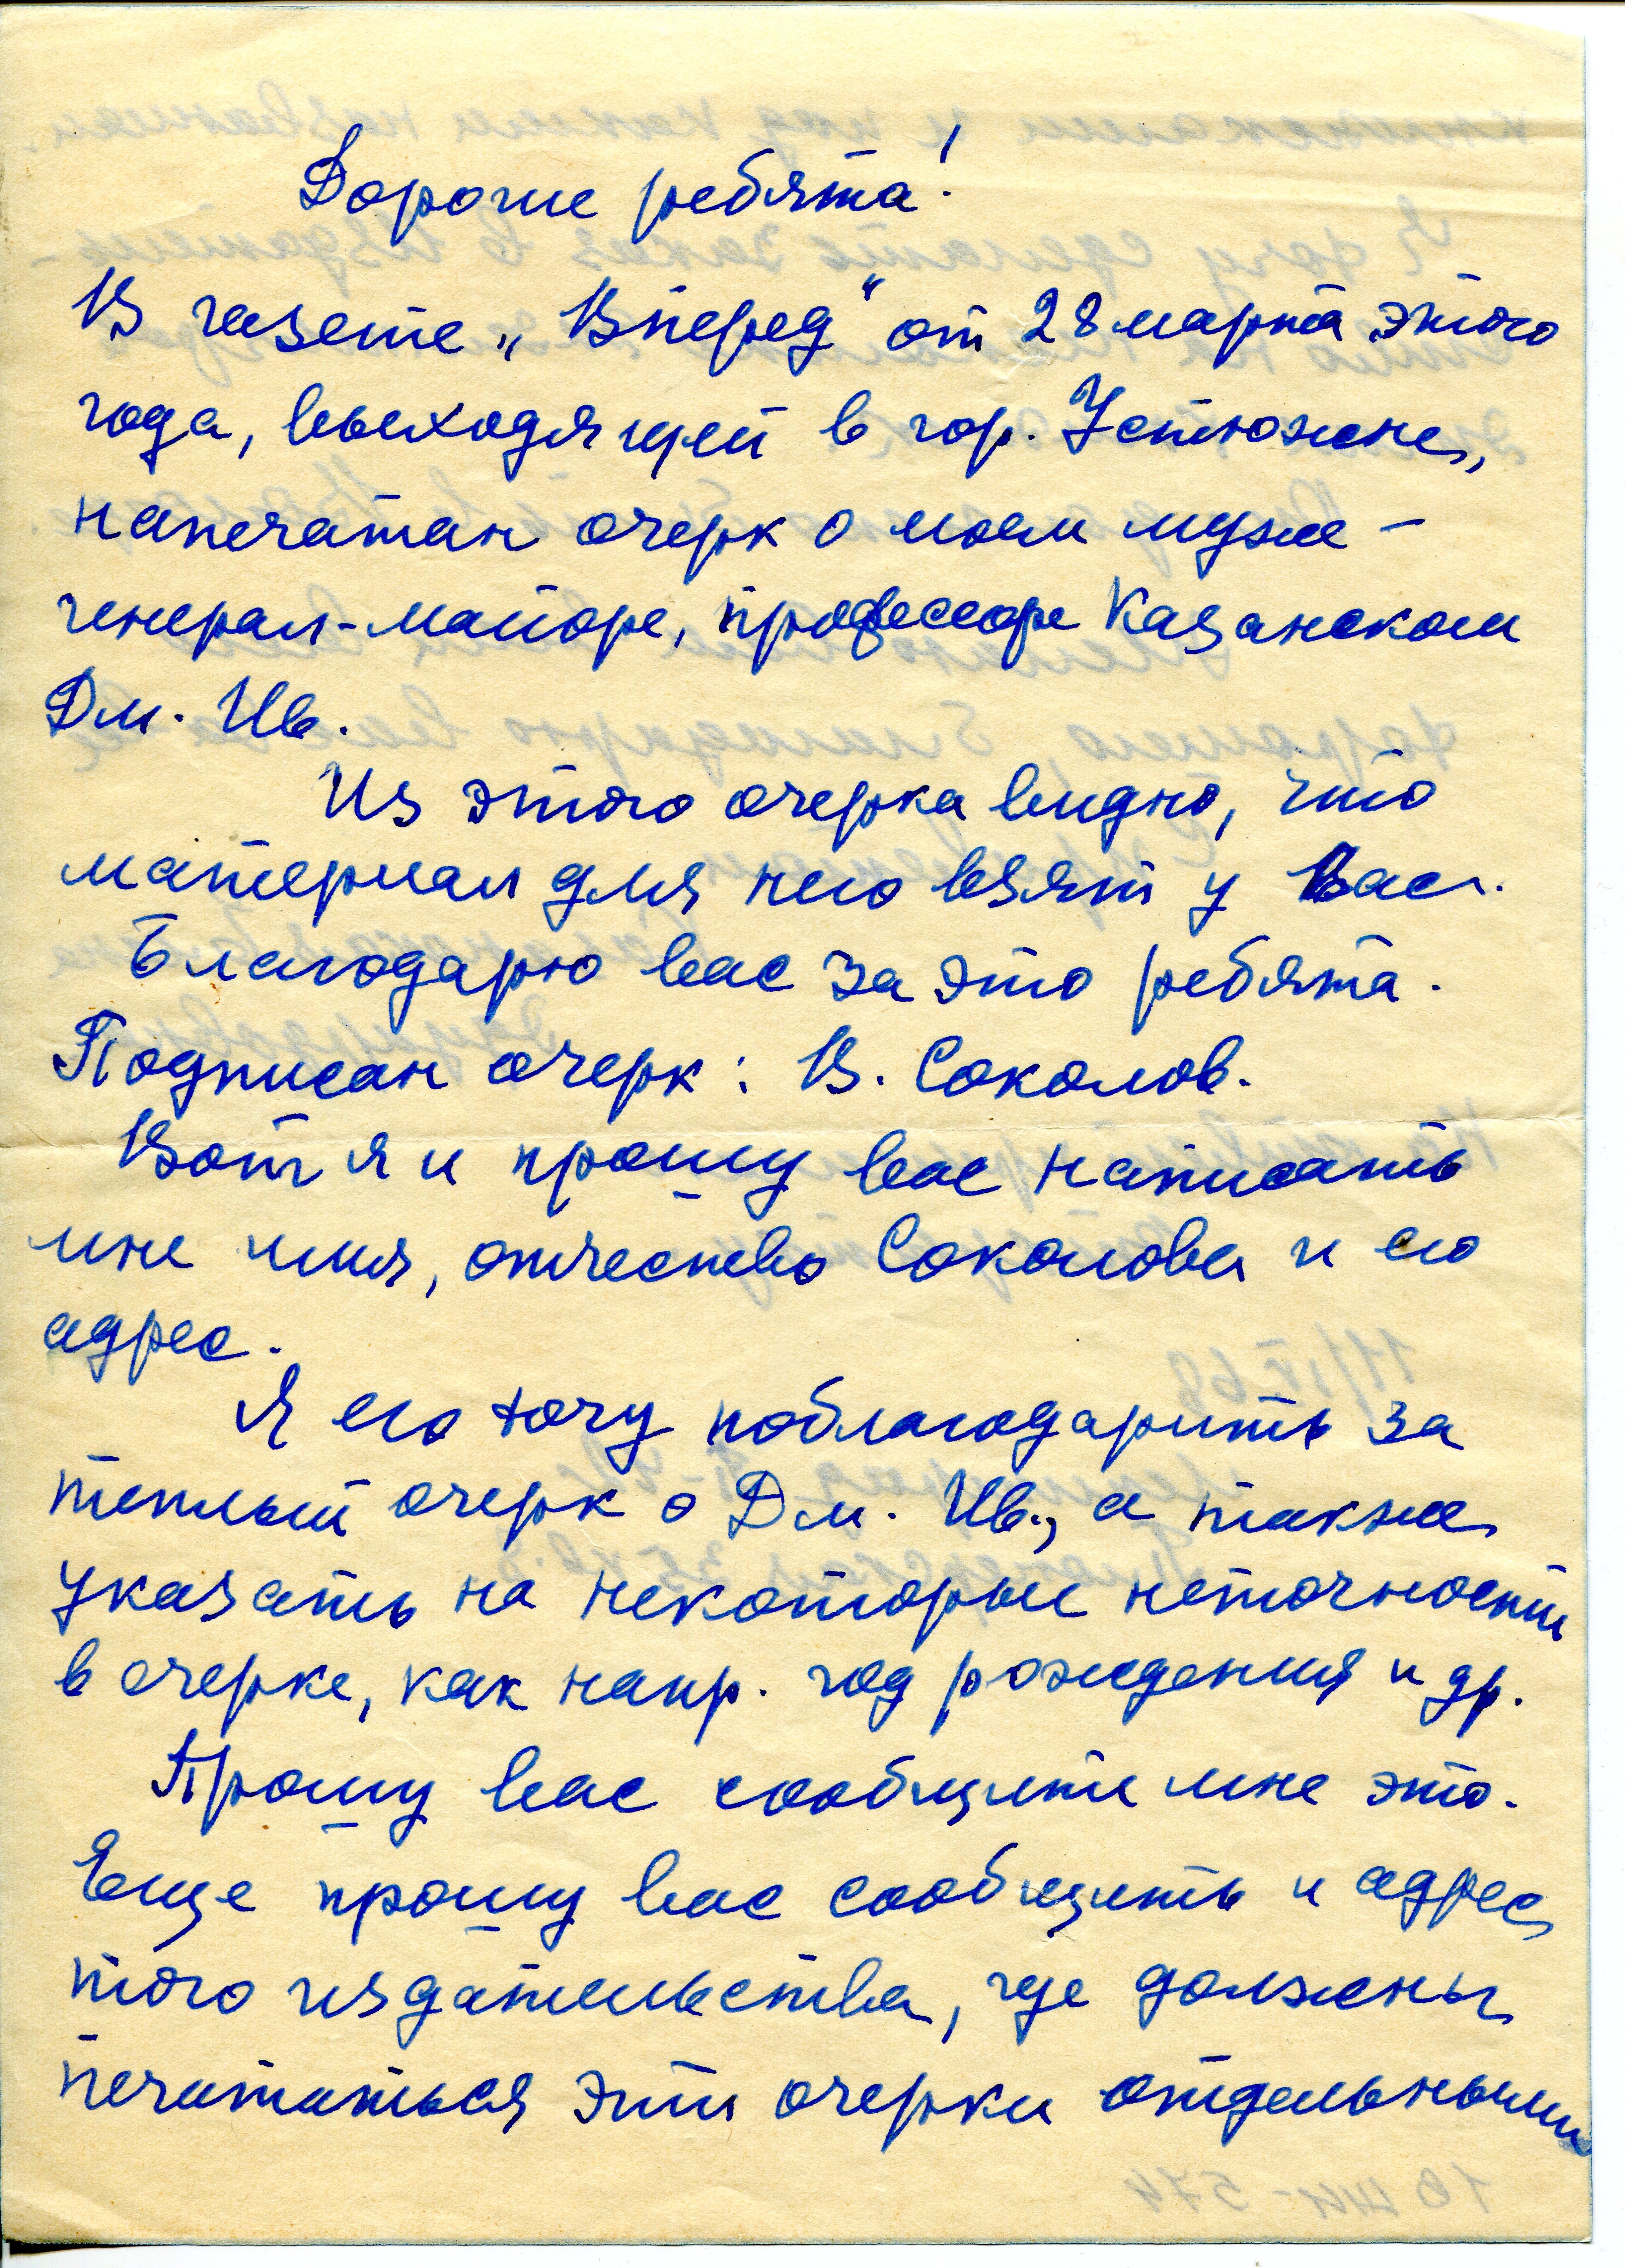 Дорогие ребята!
В газете „Вперед" от 28 марта этого
года, выходящей в гор. Устюжне,
напечатан очерк о моем муже –
генерал-майоре, профессоре Казанском
Дм. Ив.
Из этого очерка видно, что
материал для него взят у Вас.
Благодарю вас за это ребята.
Подписан очерк: В. Соколов.
Вот я и прошу вас написать
мне имя, отчество Соколова и его
адрес.
Я его хочу поблагодарить за
теплый очерк о Дм. Ив., а также
указать на некоторые неточности
в очерке, как напр. год рождения и др.
Прошу вас сообщите мне это.
Еще прошу вас сообщить и адрес
того издательства, где должны
печататься эти очерки отдельными